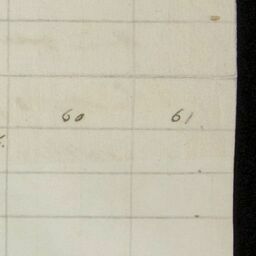 60 61